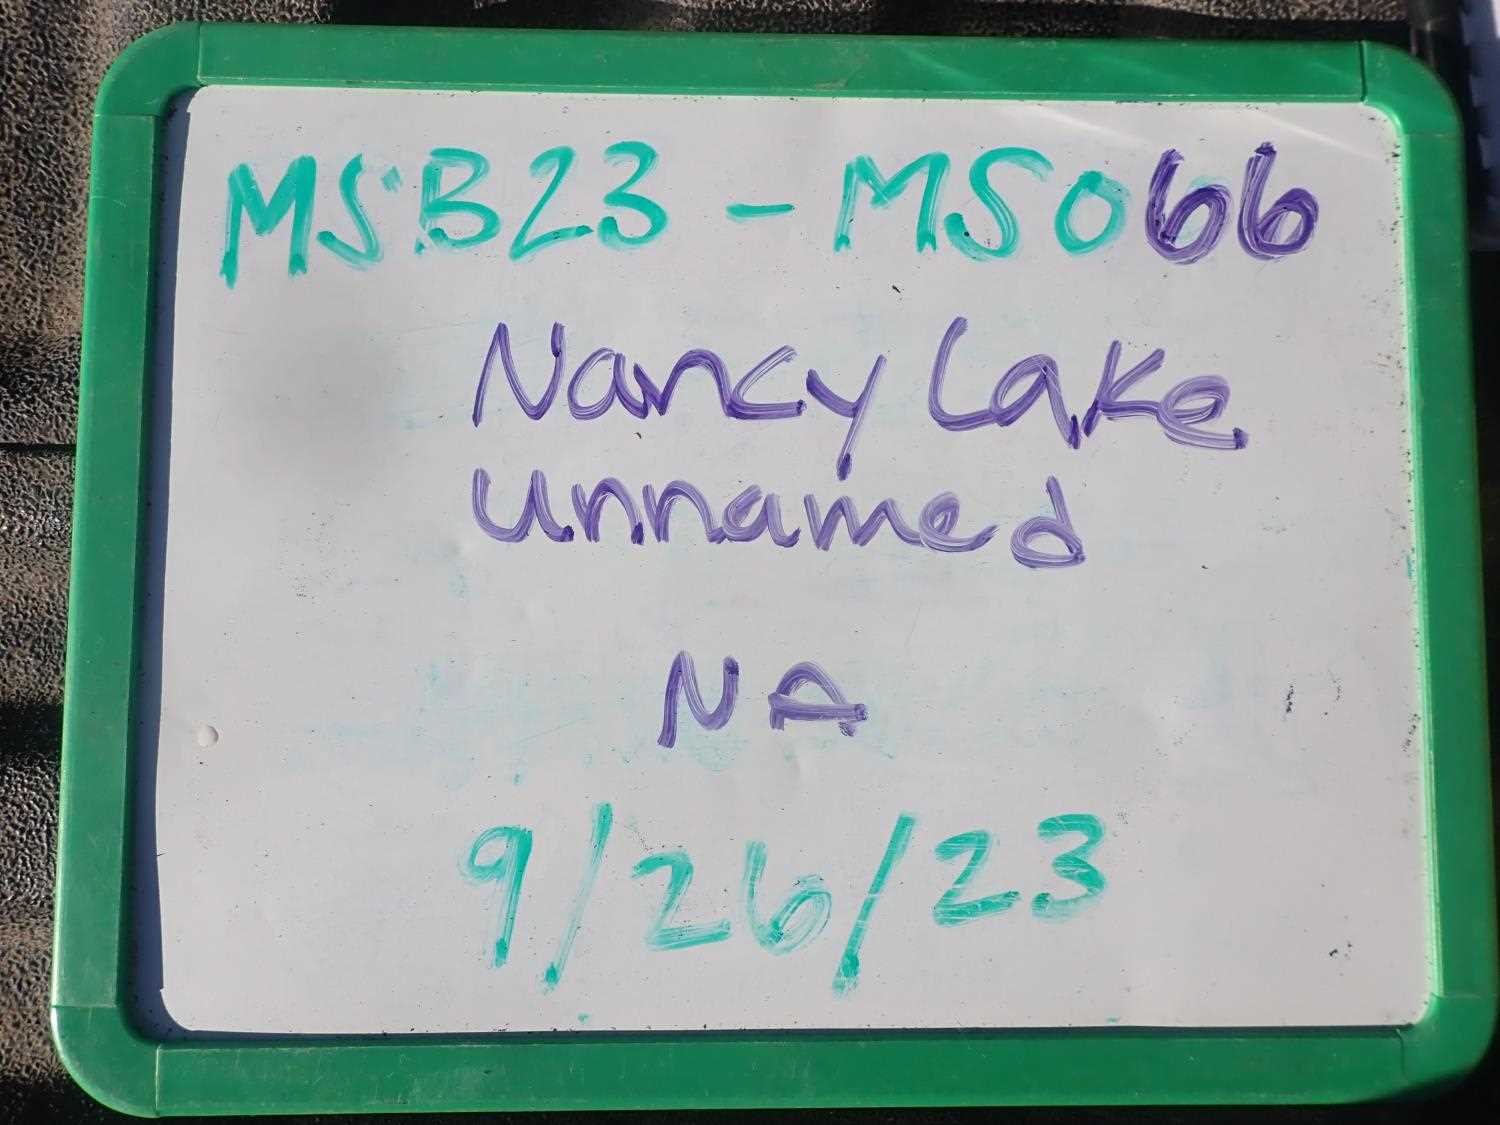 MSB23 - MS066
Nancy Lake
Unnamed
NA
9/26/23